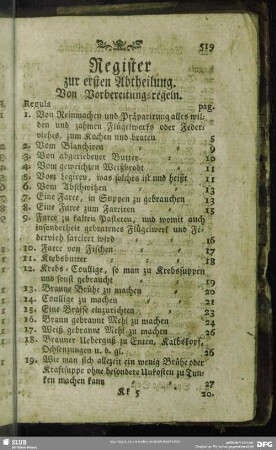 519
Register
zur ersten Abtheilung.
Von Vorbereitungsregeln.
Regula pag.
1. Von Reinmachen und Präparirung alles wil-
den und zahmen Flügelwerks oder Feder-
viehes, zum Kochen und braten 5
2. Vom Blanchiren 9
3. Von abgeriebener Butter 10
4. Vom geweichten Weißbrodt 11
5. Vom legiren, was solches ist und heißt 11
6. Vom Abschwitzen 13
7. Eine Farce, in Suppen zu gebrauchen 13
8. Eine Farce zum Farciren 15
9. Farce zu kalten Pasteten, und womit auch
insonderheit gebratenes Flügelwerk und Fe-
dervieh farciret wird 16
10. Farce von Fischen 17
11. Krebsbutter 18
12. Krebs-Coullige, so man zu Krebssuppen
und sonst gebraucht 19
13. Braune Brühe zu machen 20
14. Coullige zu machen 21
15. Eine Braise einzurichten 23
16. Braun gebrannt Mehl zu machen 24
17. Weiß gebrannt Mehl zu machen 26
18. Brauner Ueberguß zu Enten, Kalbskopf,
Ochsenzungen u. d. gl. 26
19. Wie man sich allezeit ein wenig Brühe oder
Kraftsuppe ohne besondere Unkosten zu Tun-
ken machen kann 27
Kk 5 20.
SLUB
DFG